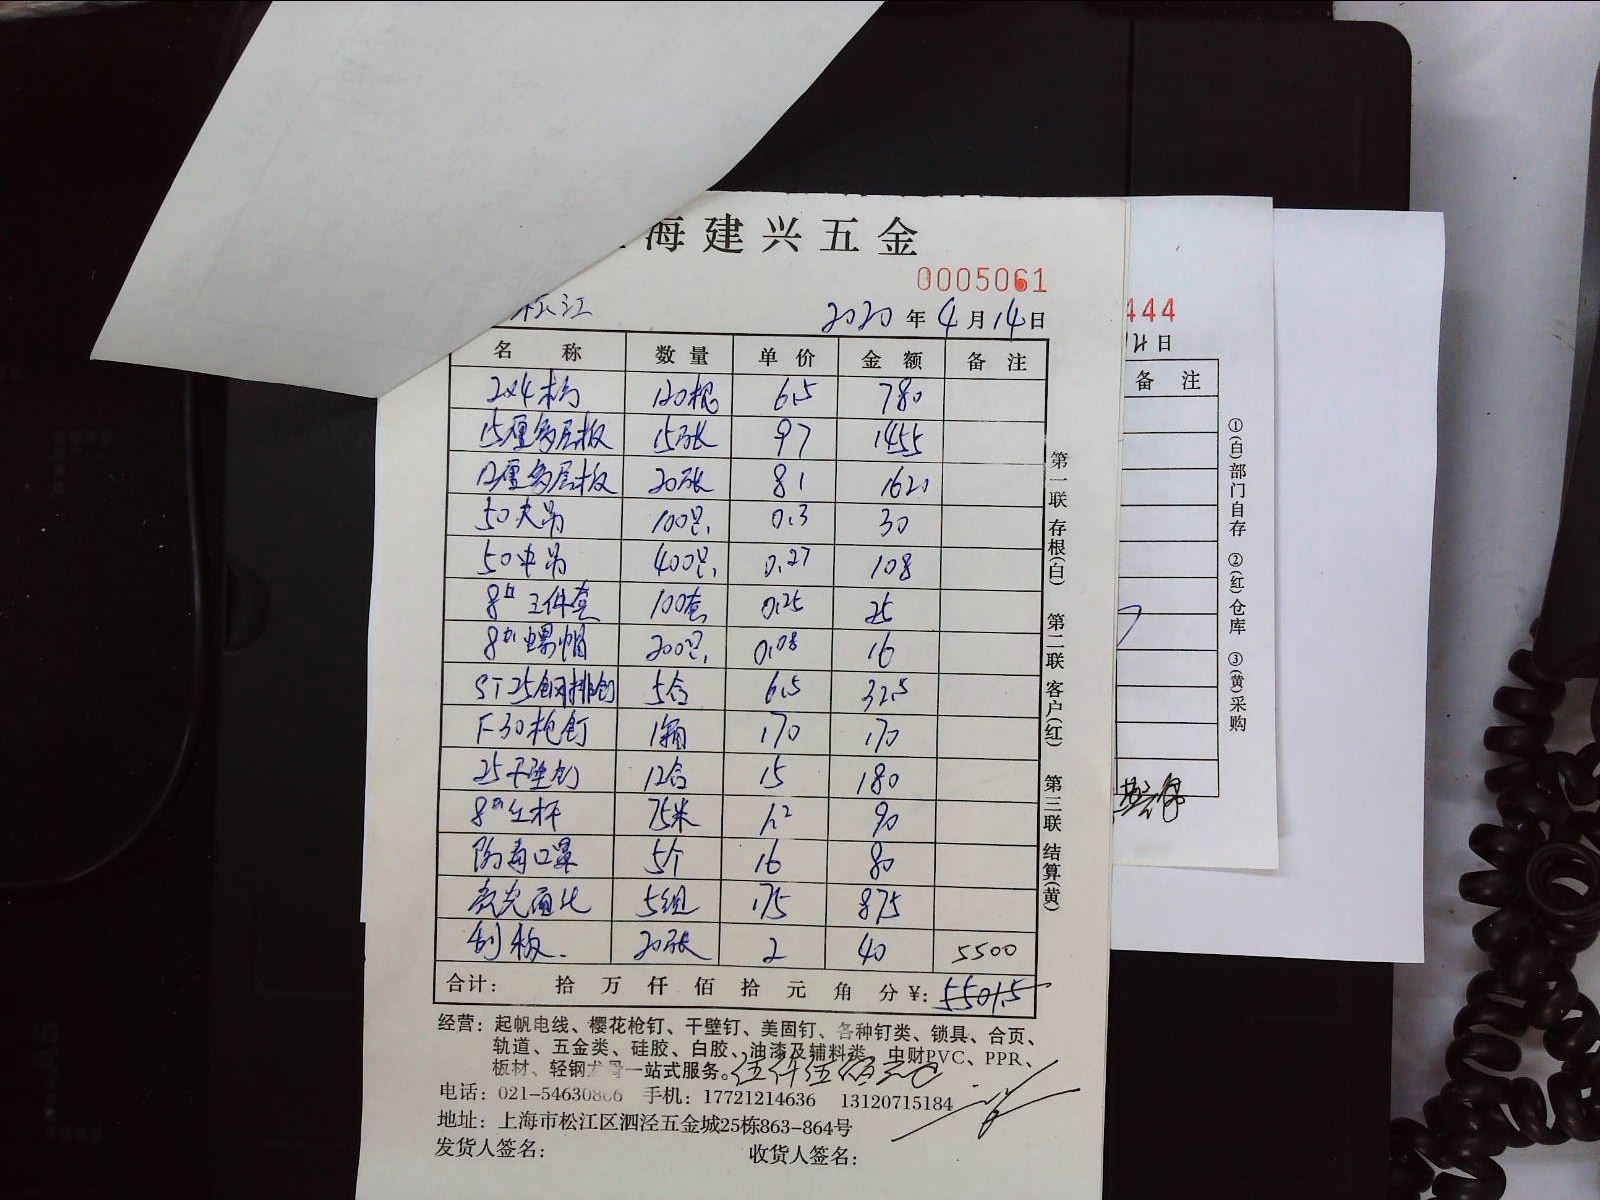 海建兴五金
0005061
松江
2020年4月14日
名 称 数量 单价 金额 备注
2x4木方 120根 6.5 780
15厘多层板 15张 97 1455
12厘多层板 20张 81 1620
50大吊 100只 0.3 30
50中吊 400只 0.27 108
8# 三件套 100套 0.25 25
8# 螺帽 200只 0.08 16
ST25钢排钉 5合 6.5 32.5
F30枪钉 1箱 170 170
25干壁钉 12合 15 180
8#丝杆 75米 1.2 90
防毒口罩 5个 16 80
5组 175 875
刮板 20张 2 40 5500
合计： 拾 万 仟 佰 拾 元 角 分 ¥: 5501.5
经营：起帆电线、樱花枪钉、干壁钉、美固钉、各种钉类、锁具、合页、
轨道、五金类、硅胶、白胶、油漆及辅料类、中财PVC、PPR、
板材、轻钢龙骨一站式服务。
伍仟伍佰元
电话：021-54630866 手机：17721214636 13120715184
地址：上海市松江区泗泾五金城25栋863-864号
发货人签名： 收货人签名：
第一联 存根(白) 第二联 客户(红) 第三联 结算(黄)
444
日
备注
①(白)部门自存 ②(红)仓库 ③(黄)采购